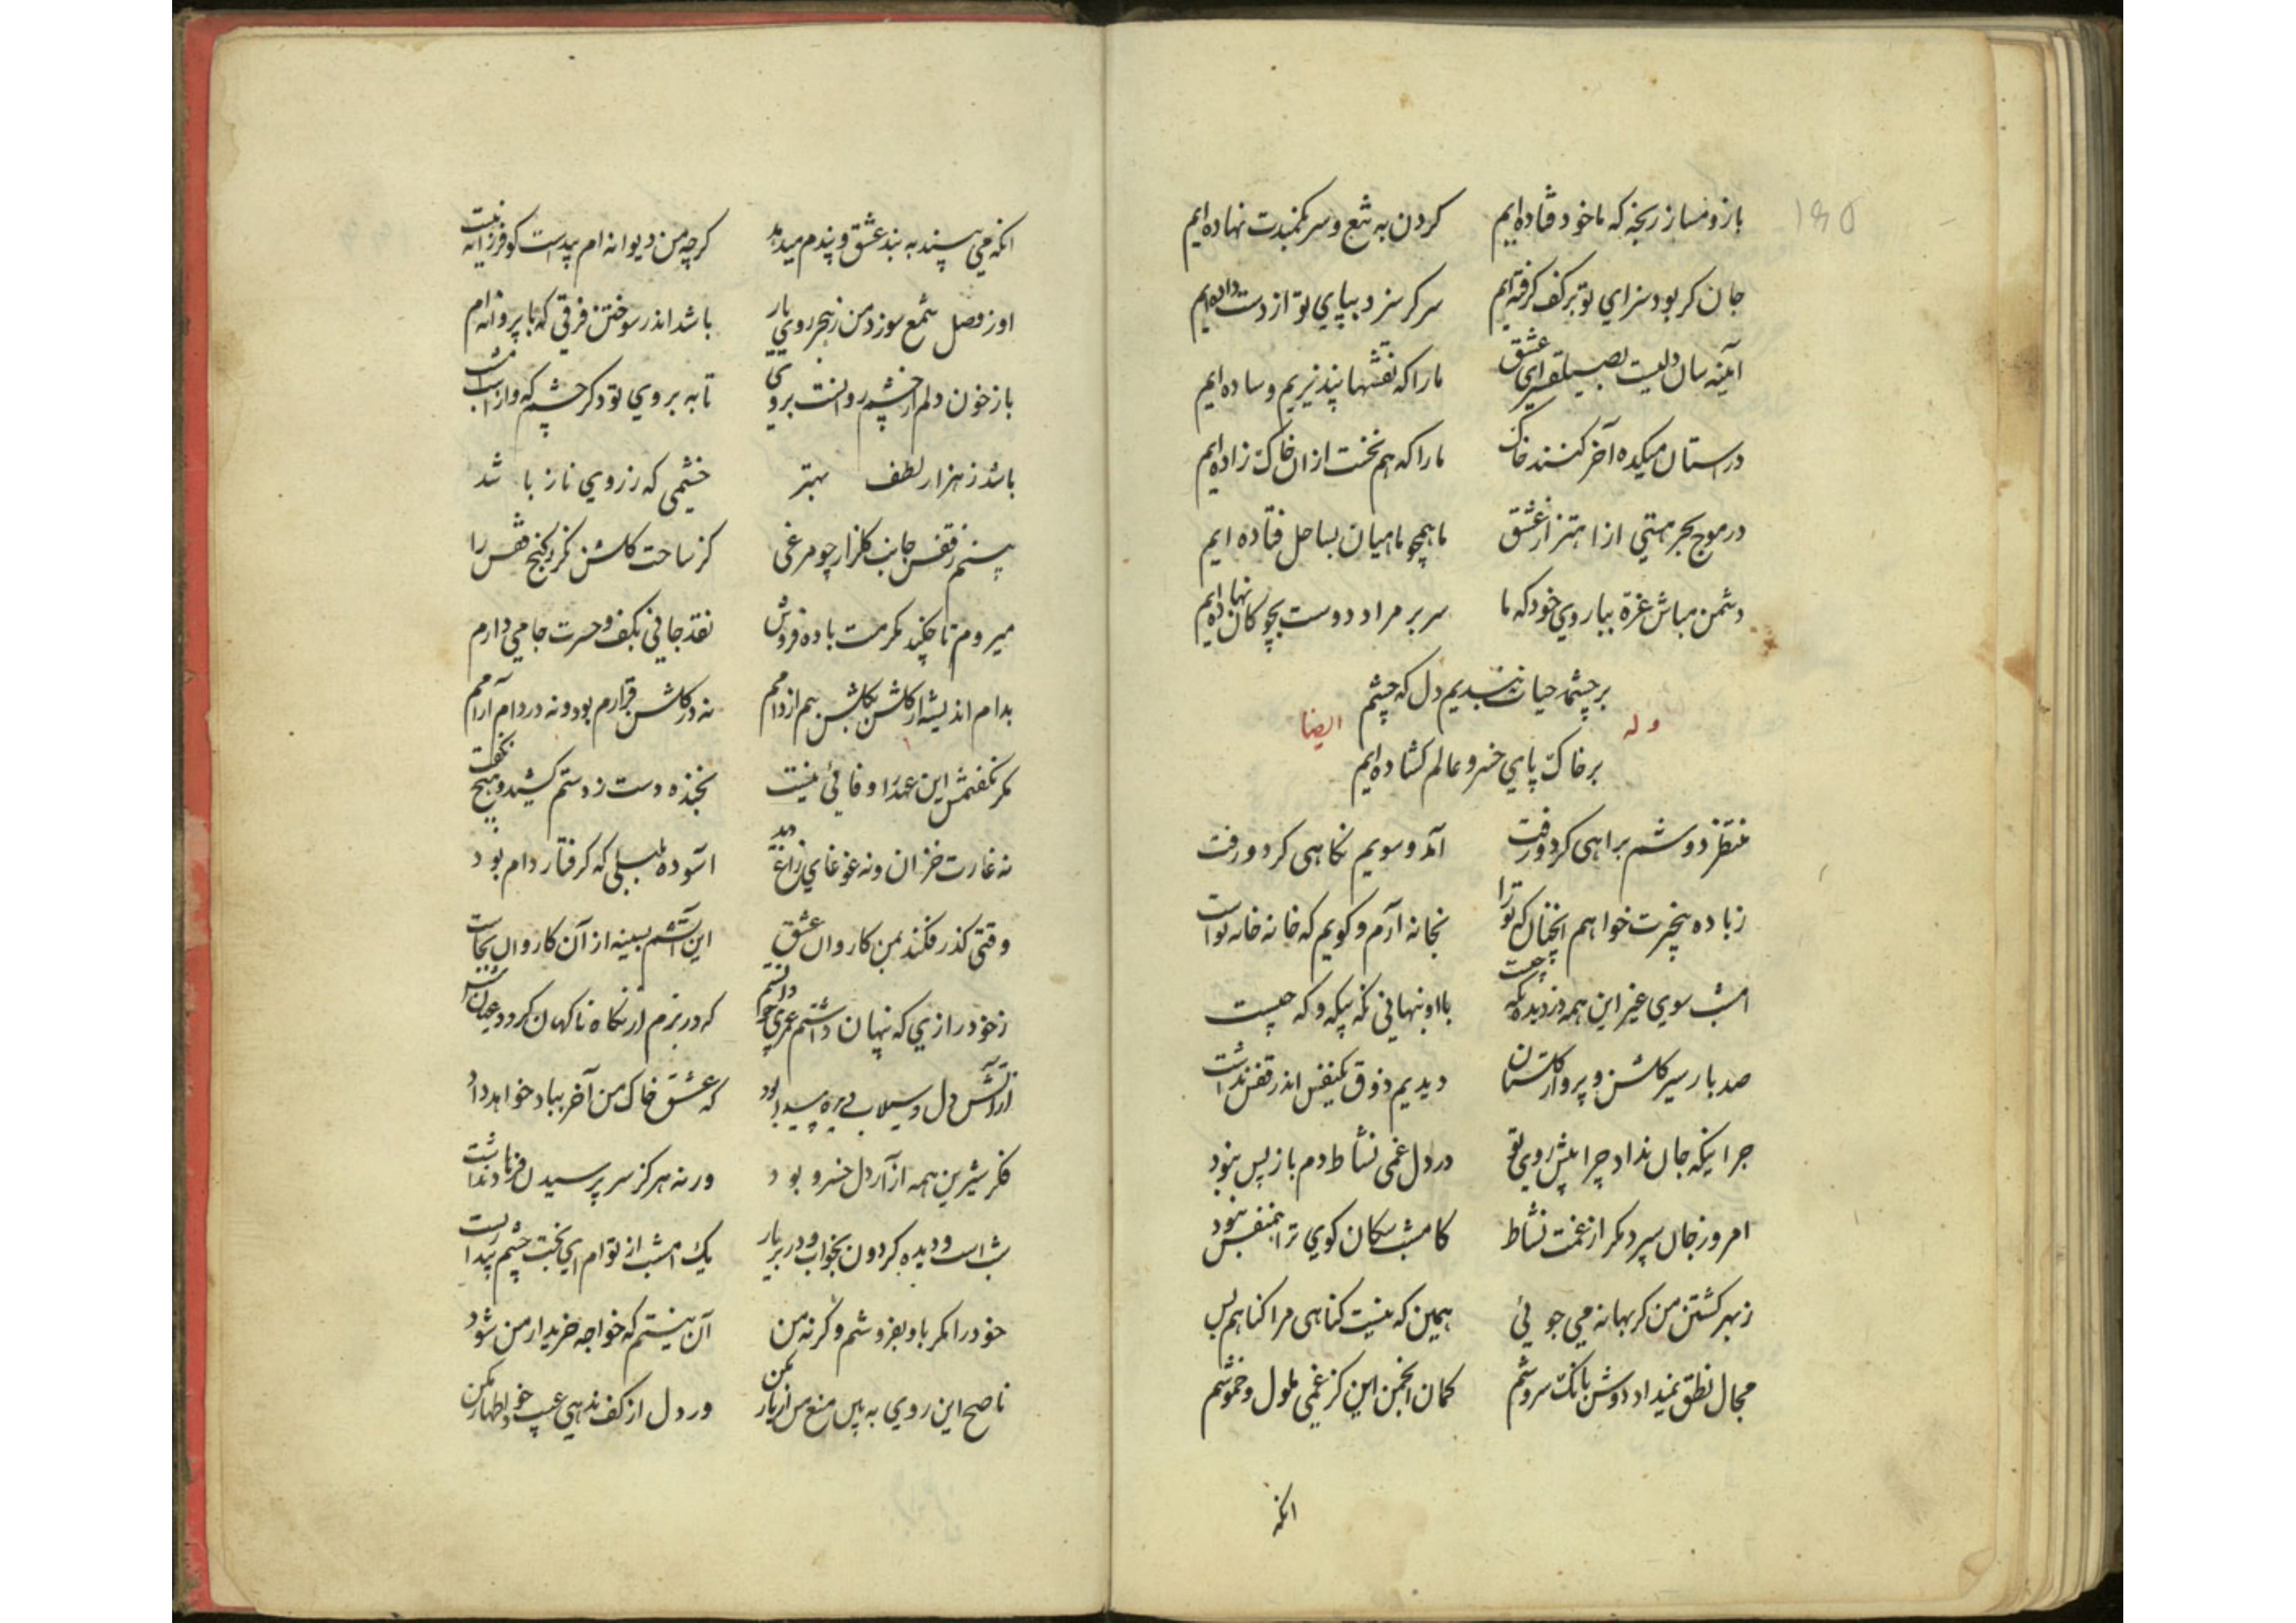 ۱۹۵
بازو مساز رنجه که ما خود فتاده‌ایم کردن به تیغ و سر بکمندت نهاده‌ایم
جان کر بود سزای تو بر کف کرفته‌ایم سر کر سزد بپای تو از دست داده‌ایم
آینه سان دلیست بصیقل‌سرای عشق ما را که نقشها بپذیریم و ساده‌ایم
در استان میکده آخر کنند خاک ما را که هم نخست ازان خاک زاده‌ایم
در موج بحر هستی از اهتزاز عشق ما همچو ماهیان بساحل فتاده ایم
دشمن مباش غرة ببازوی خود که ما سر بر مراد دوست بچوکان نهاده‌ایم
بر چشمه حیات نبندیم دل که چشم
وله ایضا
بر خاک پای خسرو عالم کشاده‌ایم
منتظر دوشم براهی کرد و رفت آمد و سویم نکاهی کرد و رفت
ز باده بیخبرت خواهم انچنان که ترا بخانه آرم و کویم که خانه خانه تواست
امشب سوی غیر این همه دزدیده نکه چیست با او نهانی نکه پیکه و که چیست
صد بار سیر کلشن و پرواز کلستان دیدیم ذوق یکنفس اندر قفس نداشت
جز اینکه جان نداد چرا پیش روی تو در دل غمی نشاط دم بازپس نبود
امروز جان سپرد مکر از غمت نشاط کامشب سکان کوی ترا همنفس نبود
ز بهر کشتن من کر بهانه می جوئی همین که نیست کناهی مرا کناهم بس
مجال نطق نمیداد دوش بانک سروشم کمان انجمن این کز غمی ملول و خموشم
انکه
انکه می پسند به بند عشق و پندم میدهد کرچه من دیوانه ام پیداست کو فرزانه نیست
او ز وصل شمع سوزد من ز هجر روی یار باشد اندر سوختن فرقی که با پروانه‌ام
باز خون دلم از چشم روانست بروی تا به بر روی تو دکر چشم که وازاست امشب
باشد ز هزار لطف بهتر خشمی که ز روی ناز باشد
بینم ز قفس جانب کلزار چو مرغی کز ساحت کلشن نکرد کنج قفس را
میروم تا چکند مکرمت باده فروش نقد جانی بکف و حسرت جامی دارم
بدام اندیشه از کلشن بکلشن بیم از دامم نه در کلشن قرارم بود و نه در دام آرامم
مکر نکفتمش این عهد را وفائی نیست بخنده دست ز دستم کشید و هیچ نکفت
نه غارت خزان و نه غوغای زاغ دید اسوده بلبلی که کرفتار دام بود
وقتی کذر فکند بمن کاروان عشق این آتشم بسینه از آن کاروان بجاست
ز خود رازی که پنهان داشتم عمری چو دانستم که در بزم از نکاه ناکهان کردد عیان
ز آتش دل و سیلاب دیده پیدا بود که عشق خاک من آخر بباد خواهد داد
فکر شیرین همه از آر دل خسرو بود ور نه هرکز سر پرسیدن فرهاد نداشت
شب است و دیده کردون بخواب و در بر یار یک امشب از تو ام ای بخت چشم بیداریست
خود را مکر باو بفروشم وکرنه من آن نیستم که خواجه خریدار من شود
ناصح این روی به بین منع من از یار مکن ور دل از کف ندهی عیب خود اظهار مکن